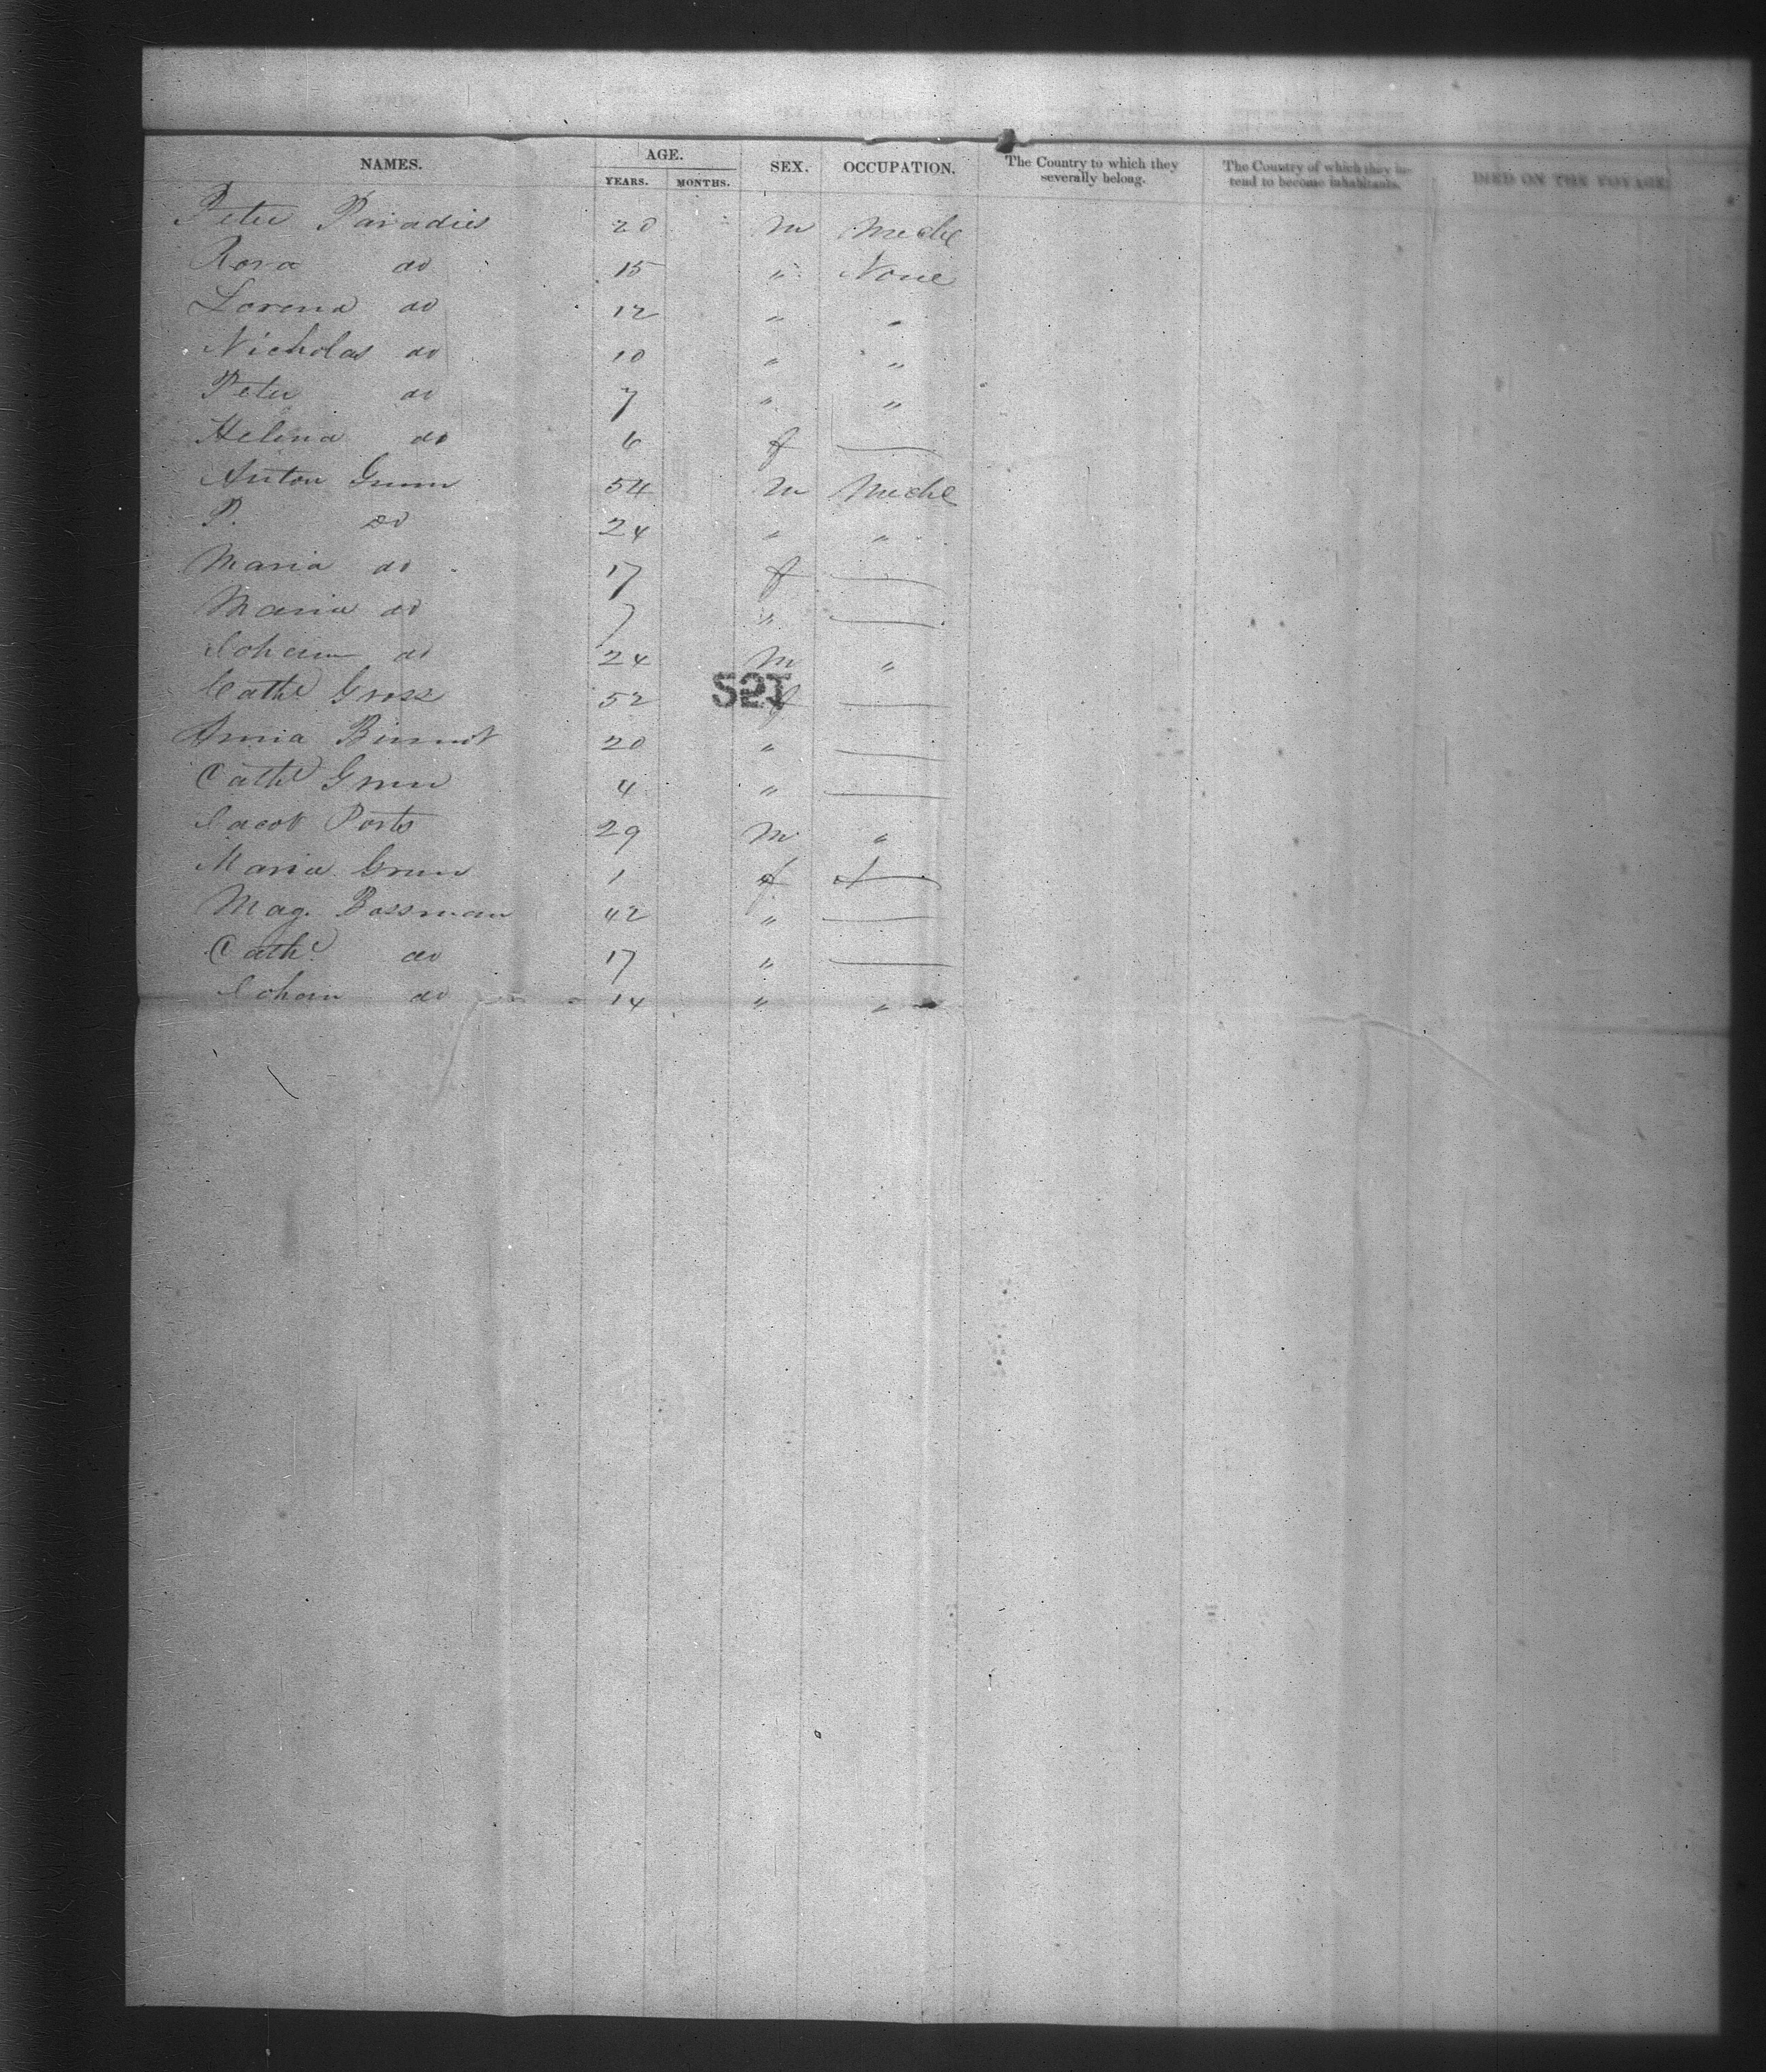 NAMES. AGE. SEX. OCCUPATION. The Country to which they severally belong. The Country of which they intend to become inhabitants. DIED ON THE VOYAGE.
YEARS. MONTHS.
Peter Paradies 20 m Mechc
Rosa do 15 " None
Lorena do 12 " "
Nicholas do 10 " "
Peter do 7 " "
Helena do 6 f —
Anton Grunn 54 m Mechc
P. do 24 " "
Maria do 17 f —
Maria do 7 " —
Johann do 24 m "
Cathe 52 f —
S2T
Anna 20 " —
Cathe Grun 4 " —
Jacob Ports 29 m "
Maria Grun 1 f —
Mag. Bossman 42 " —
Cathe do 17 " —
Johann do 14 " "